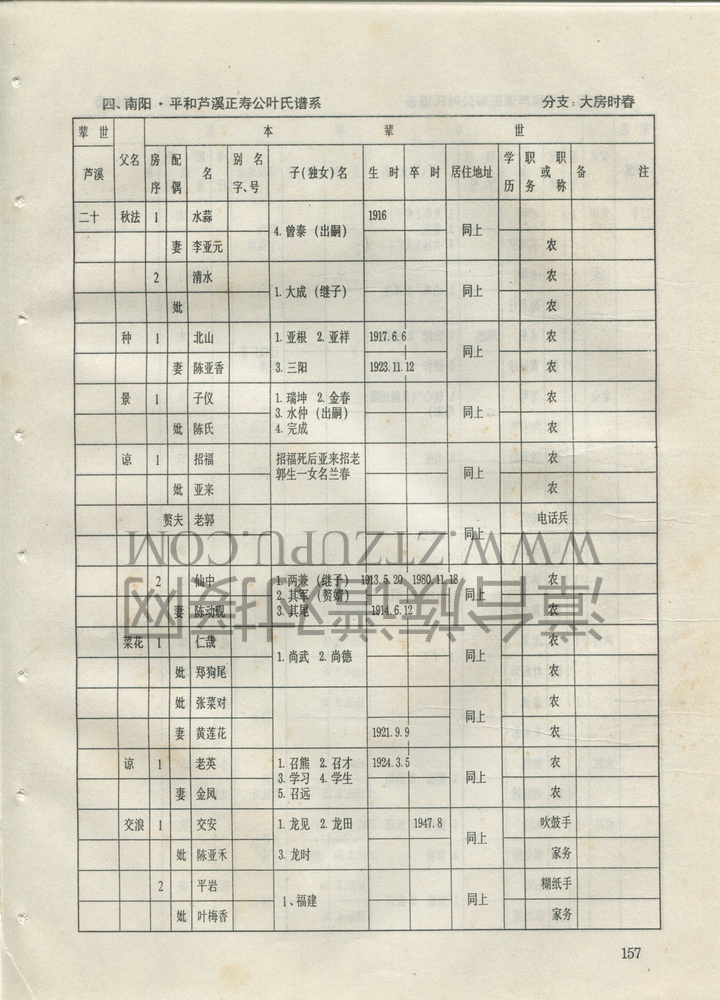 四、南阳·平和芦溪正寿公叶氏谱系 分支：大房时春
辈世 本辈世
芦溪 父名 房序 配偶 名 别名字、号 子(独女)名 生时 卒时 居住地址 学历 职或职务称 备注
二十 秋法 1 水蒜 4.曾泰(出嗣) 1916 同上
妻 李亚元 农
2 清水 1.大成(继子) 同上 农
妣 农
种 1 北山 1.亚根 2.亚祥 1917.6.6 同上 农
妻 陈亚香 3.三阳 1923.11.12 农
景 1 子仪 1.瑞坤 2.金春 同上 农
3.水仲(出嗣)
妣 陈氏 4.完成 农
谅 1 招福 招福死后亚来招老 同上 农
郭生一女名兰春
妣 亚来 农
赘夫 老郭 同上 电话兵
WWW.ZTZUPU.COM
2 仙中 1.两兼(继子) 1913.5.20 1980.11.18 同上 农
2.其军(赘婿)
妻 陈动砚 3.其尾 1914.6.12 农
漳台族谱对接网
菜花 1 仁哉 1.尚武 2.尚德 同上 农
妣 郑狗尾 农
妣 张菜对 同上 农
妻 黄莲花 1921.9.9 农
谅 1 老英 1.召熊 2.召才 1924.3.5 同上 农
3.学习 4.学生
妻 金凤 5.召远 农
交浪 1 交安 1.龙见 2.龙田 1947.8 同上 吹鼓手
妣 陈亚禾 3.龙时 家务
2 平岩 1、福建 同上 糊纸手
妣 叶梅香 家务
157